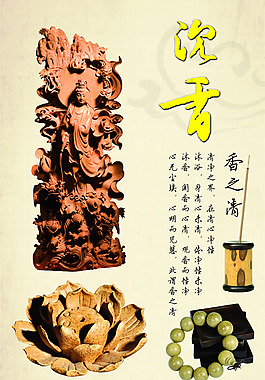 沉香
香之清
清净之界，在清心净性
沐浴，身清心未清，体净性未净
沐香，闻香而心清，观香而性净
心无尘埃，心明而见慧，此谓香之清